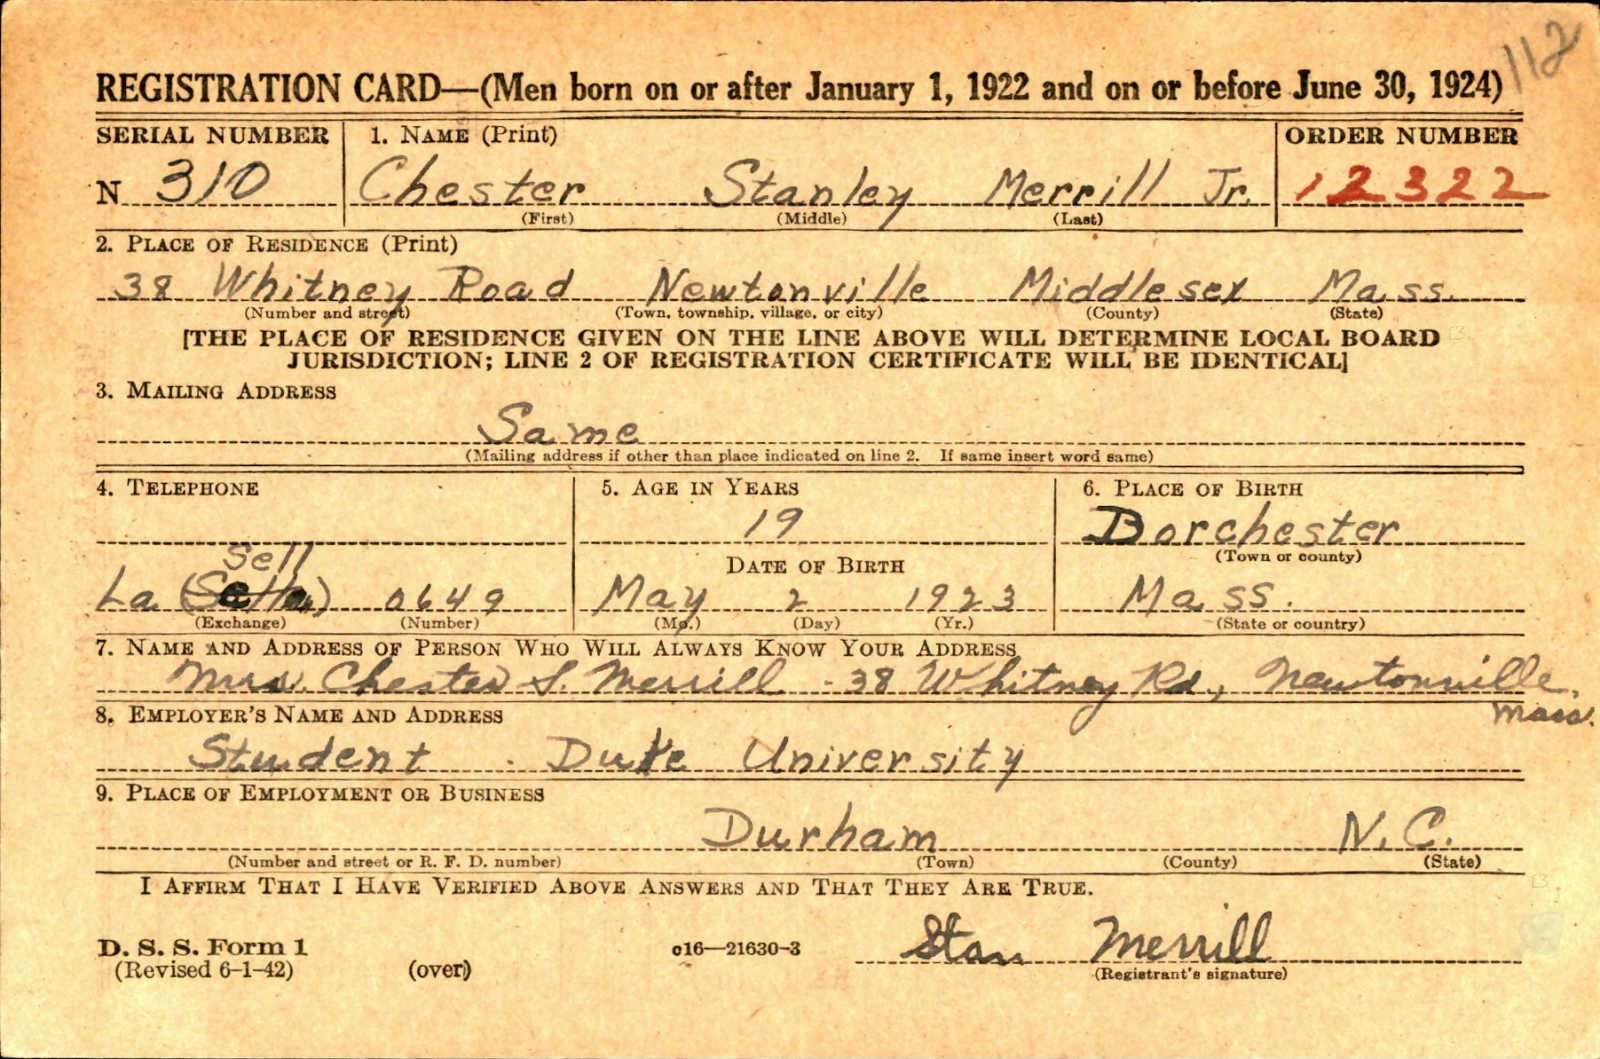 112
REGISTRATION CARD—(Men born on or after January 1, 1922 and on or before June 30, 1924)
SERIAL NUMBER 1. NAME (Print) ORDER NUMBER
N 310 Chester Stanley Merrill Jr. 12322
(First) (Middle) (Last)
2. PLACE OF RESIDENCE (Print)
38 Whitney Road Newtonville Middlesex Mass.
(Number and street) (Town, township, village, or city) (County) (State)
[THE PLACE OF RESIDENCE GIVEN ON THE LINE ABOVE WILL DETERMINE LOCAL BOARD
JURISDICTION; LINE 2 OF REGISTRATION CERTIFICATE WILL BE IDENTICAL]
3. MAILING ADDRESS
Same
(Mailing address if other than place indicated on line 2. If same insert word same)
4. TELEPHONE 5. AGE IN YEARS 6. PLACE OF BIRTH
19 Dorchester
(Town or county)
Sell DATE OF BIRTH
La 0649 May 2 1923 Mass.
(Exchange) (Number) (Mo.) (Day) (Yr.) (State or country)
7. NAME AND ADDRESS OF PERSON WHO WILL ALWAYS KNOW YOUR ADDRESS
Mrs. Chester S. Merrill - 38 Whitney Rd., Newtonville,
Mass.
8. EMPLOYER'S NAME AND ADDRESS
Student . Duke University
9. PLACE OF EMPLOYMENT OR BUSINESS
Durham N.C.
(Number and street or R. F. D. number) (Town) (County) (State)
I AFFIRM THAT I HAVE VERIFIED ABOVE ANSWERS AND THAT THEY ARE TRUE.
Stan Merrill
D. S. S. Form 1 c16—21630-3
(Revised 6-1-42) (over) (Registrant's signature)